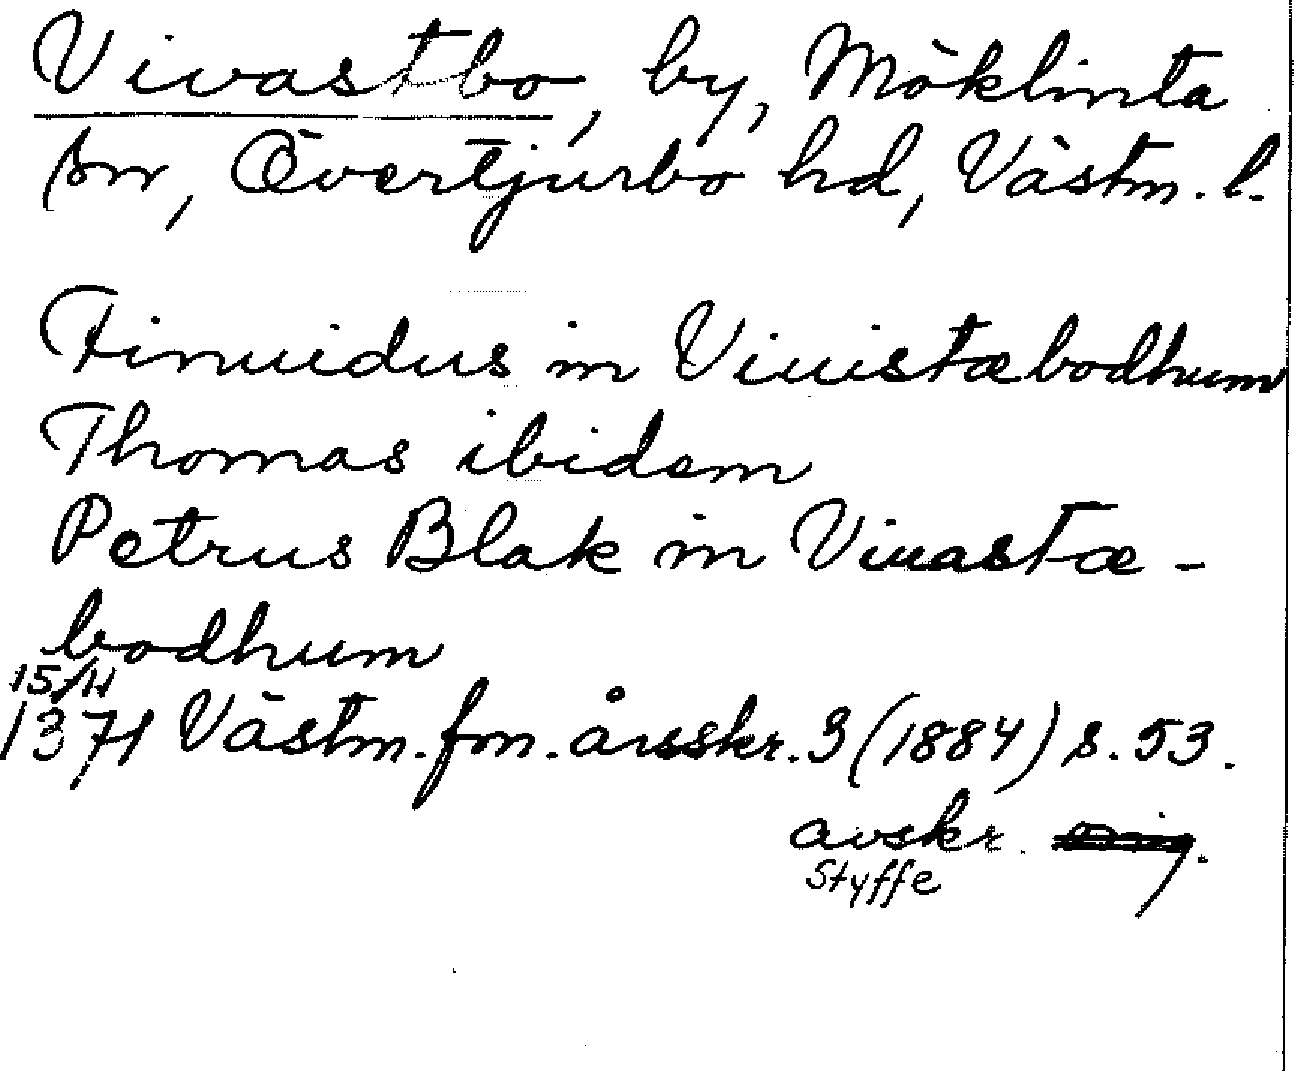 Vivastbo, by, Möklinta
sn, Övertjurbo hd, Västm. l.
Finuidus in Viuistæbodhum
Thomas ibidem
Petrus Blak in Viuastæ-
bodhum
15/11
1371 Västm. fm. årsskr. 3 (1884) s. 53.
avskr.
Styffe